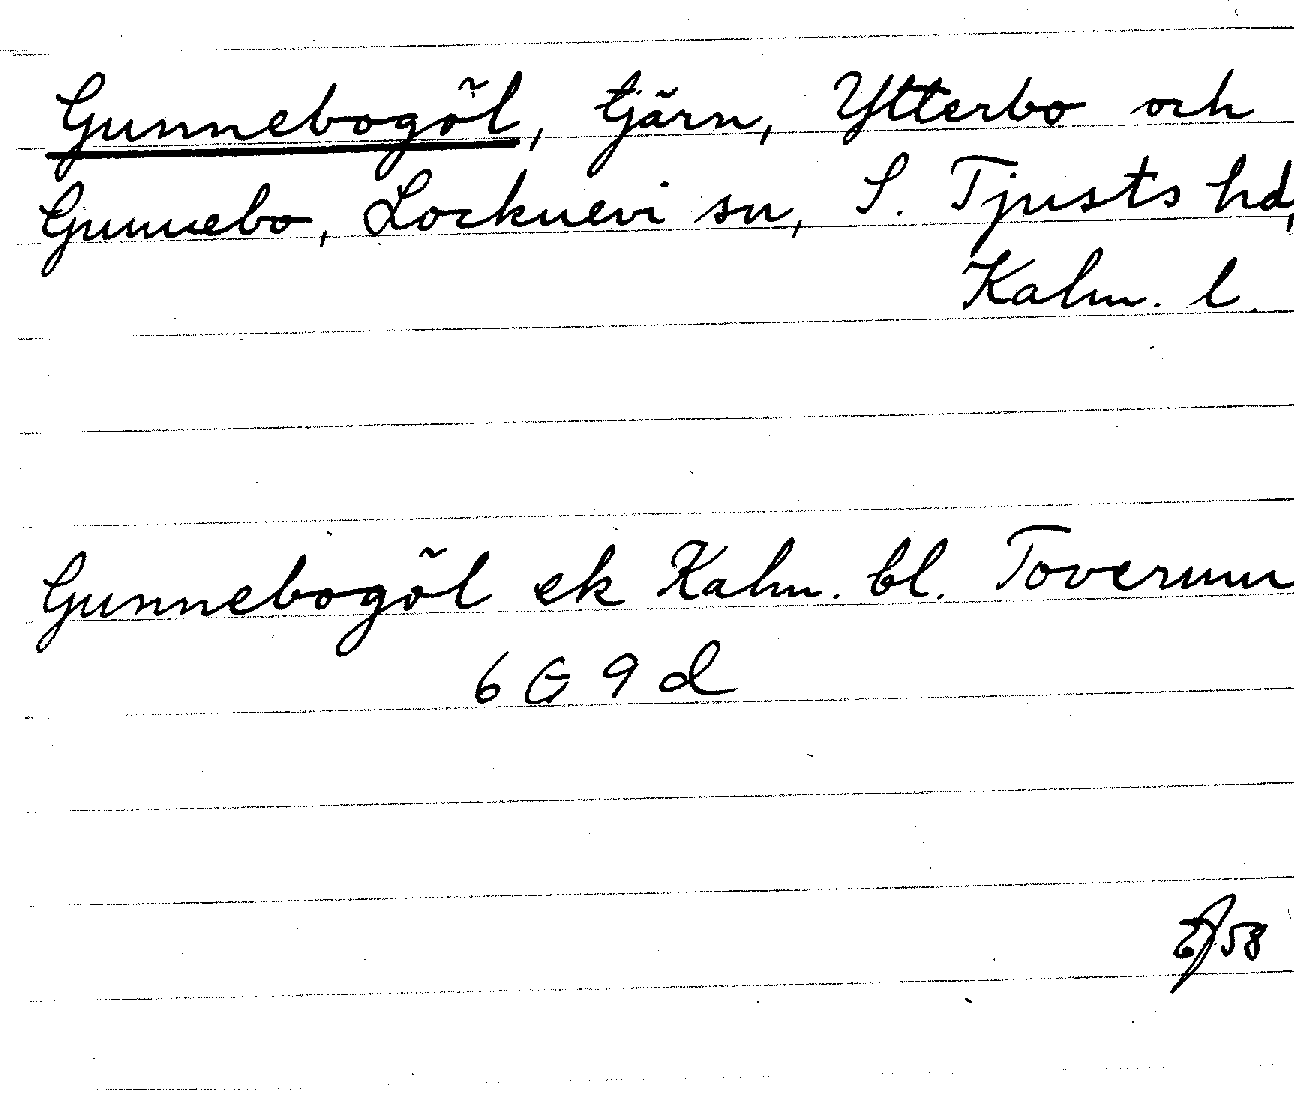 Gunnebogöl, tjärn, Ytterbo och
Gunnebo, Locknevi sn, S. Tjusts hd,
Kalm. l.
Gunnebogöl ek Kalm. bl. Toverum
6 G 9 d
58